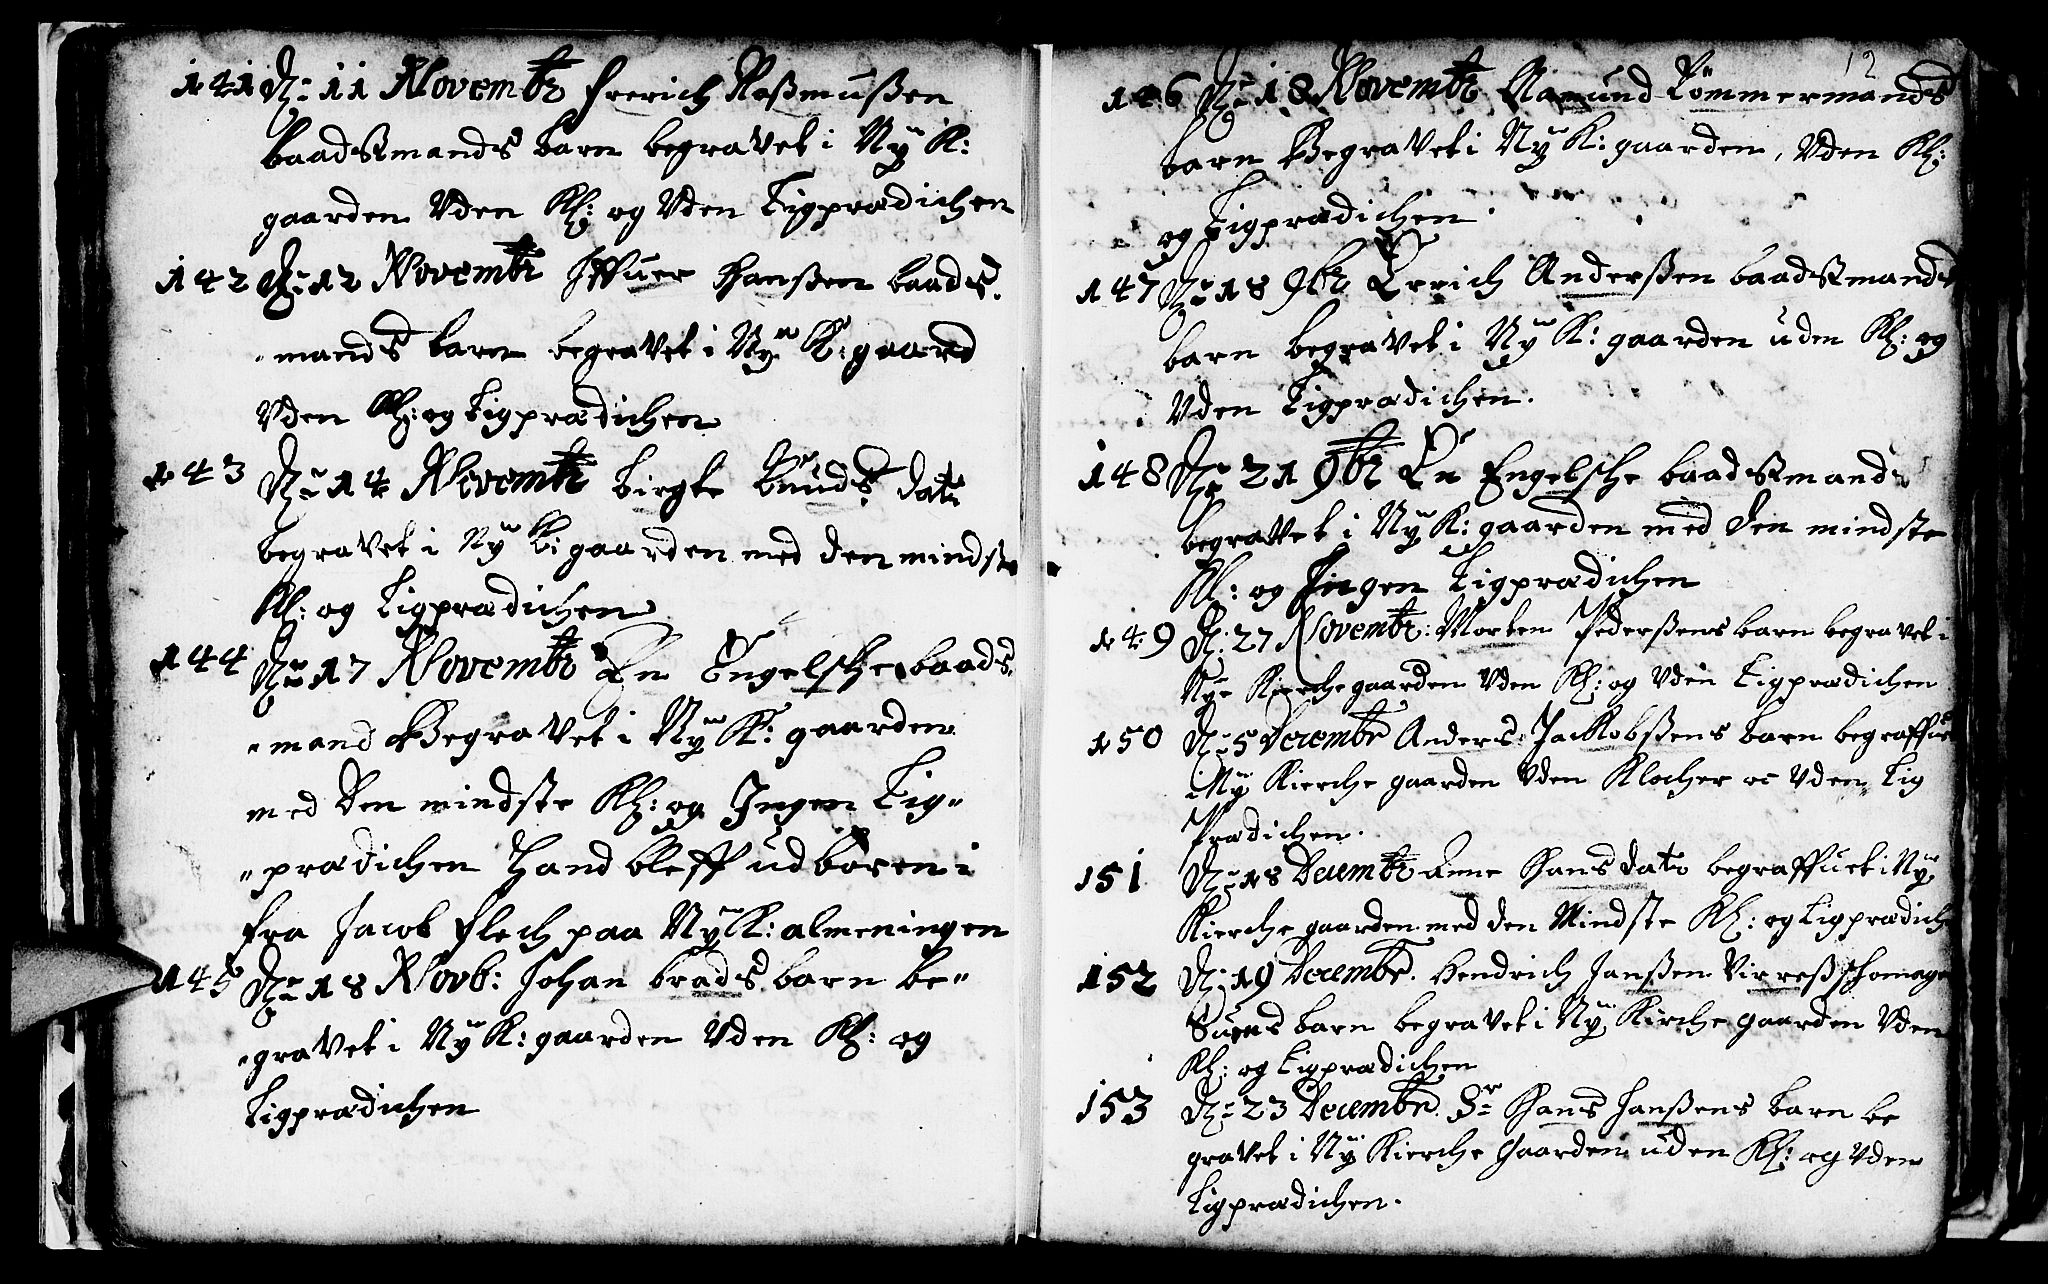 141 D: 11 Novembr frerich Rasmußen
baadsmands barn begravet i Ny K:
gaarden Vden Kl: og Vden Ligprædichen
142 D: 12 Novembr Iffuer Hanßen baads
mands barn begravet i Ny K: gaard
Vden Kl: og Ligprædichen
143 D: 14 Novembr birgte Knuds dat:
begravet i Ny K: gaarden med den mindste
Kl: og Ligprædichen
144 D: 17 Novembr En Engelsche baads
mand Begravet i Ny K: gaarden
med den mindste Kl: og Ingen Lig"
"prædichen Hand bleff udbören i
fra Jacob flech paa Ny K: almeningen
145 D: 18 Novb: Johan brads barn be"
"gravet i Ny K: gaarden Vden Kl: og
Ligprædichen
12
146 D: 18 Novembr Aamund Tömmermands
barn Begravet i Ny K: gaarden, Vden Kl:
og Ligprædichen
147 D: 18 9br Errich Anderßen baadsmands
barn begravet i Ny K: gaarden uden Kl: og
Vden Ligprædichen.
148 D: 21 9br En Engelsche baadsmand
begravet i Ny K: gaarden med den mindste
Kl: og Ingen Ligprædichen
149 D: 27 Novembr: Morten Pederßens barn begravet i
Nye Kierche gaarden Vden Kl: og Vden Ligprædichen
150 D: 5 Decembr Anders Jackobßens barn begraffuet
i Ny Kierche gaarden Vden Klocher oc Vden Lig
Prædichen.
151 D: 18 Decembr Anne Hans dat: begraffuet i Ny
Kierche gaarden med den Mindste Kl: og Ligprædich
152 D: 19 Decembr. Hendrich Janßen Virreß schomager
Suends barn begravet i Ny Kirche gaarden Vden
Kl: og Ligprædichen
153 D: 23 Decembr. Sr Hans Janßens barn be
gravet i Ny Kierche Gaarden uden Kl: og Vden
Ligprædichen.